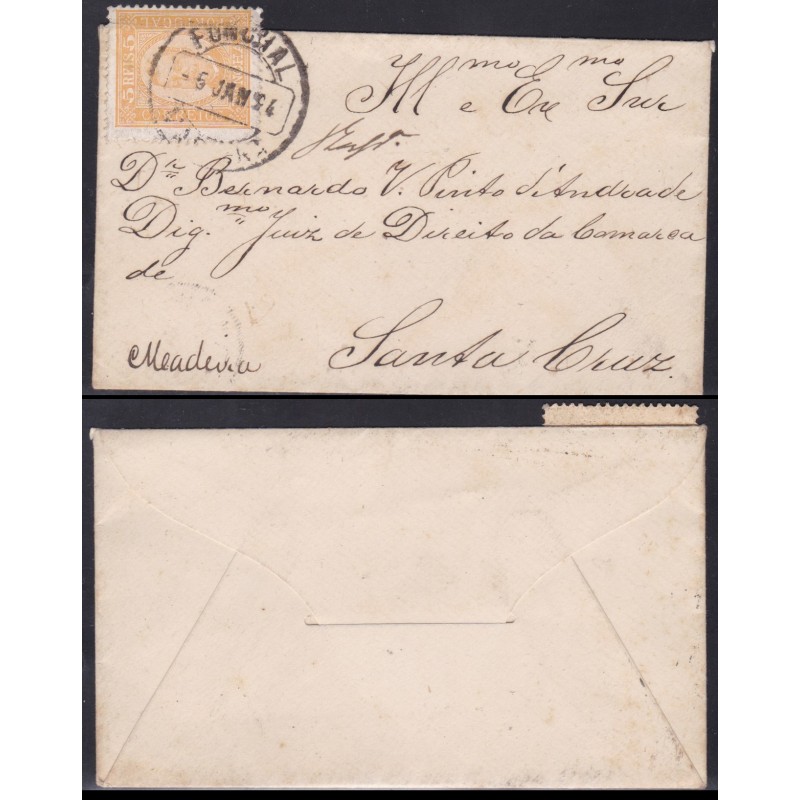 PORTUGAL
5 REIS 5
CORREIO
FUNCHAL
- 5 JAN 94
Illmo e Exmo Snr
Dr. Bernardo V. Pinto d'Andrade
Dig.mo Juiz de Direito da Comarca
de
Santa Cruz.
Meadeira